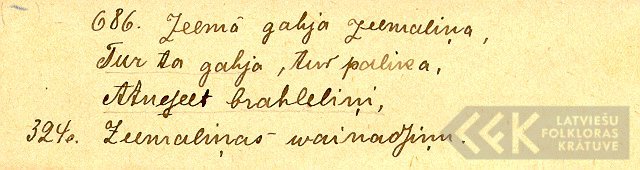 686. Zeemâ gahja zeemaliņa,
Tur ta gahja, tur palika,
Atneset brahleliņi,
324o. Zeemaliņas wainadziņu.
LATVIEŠU
FOLKLORAS
KRĀTUVE